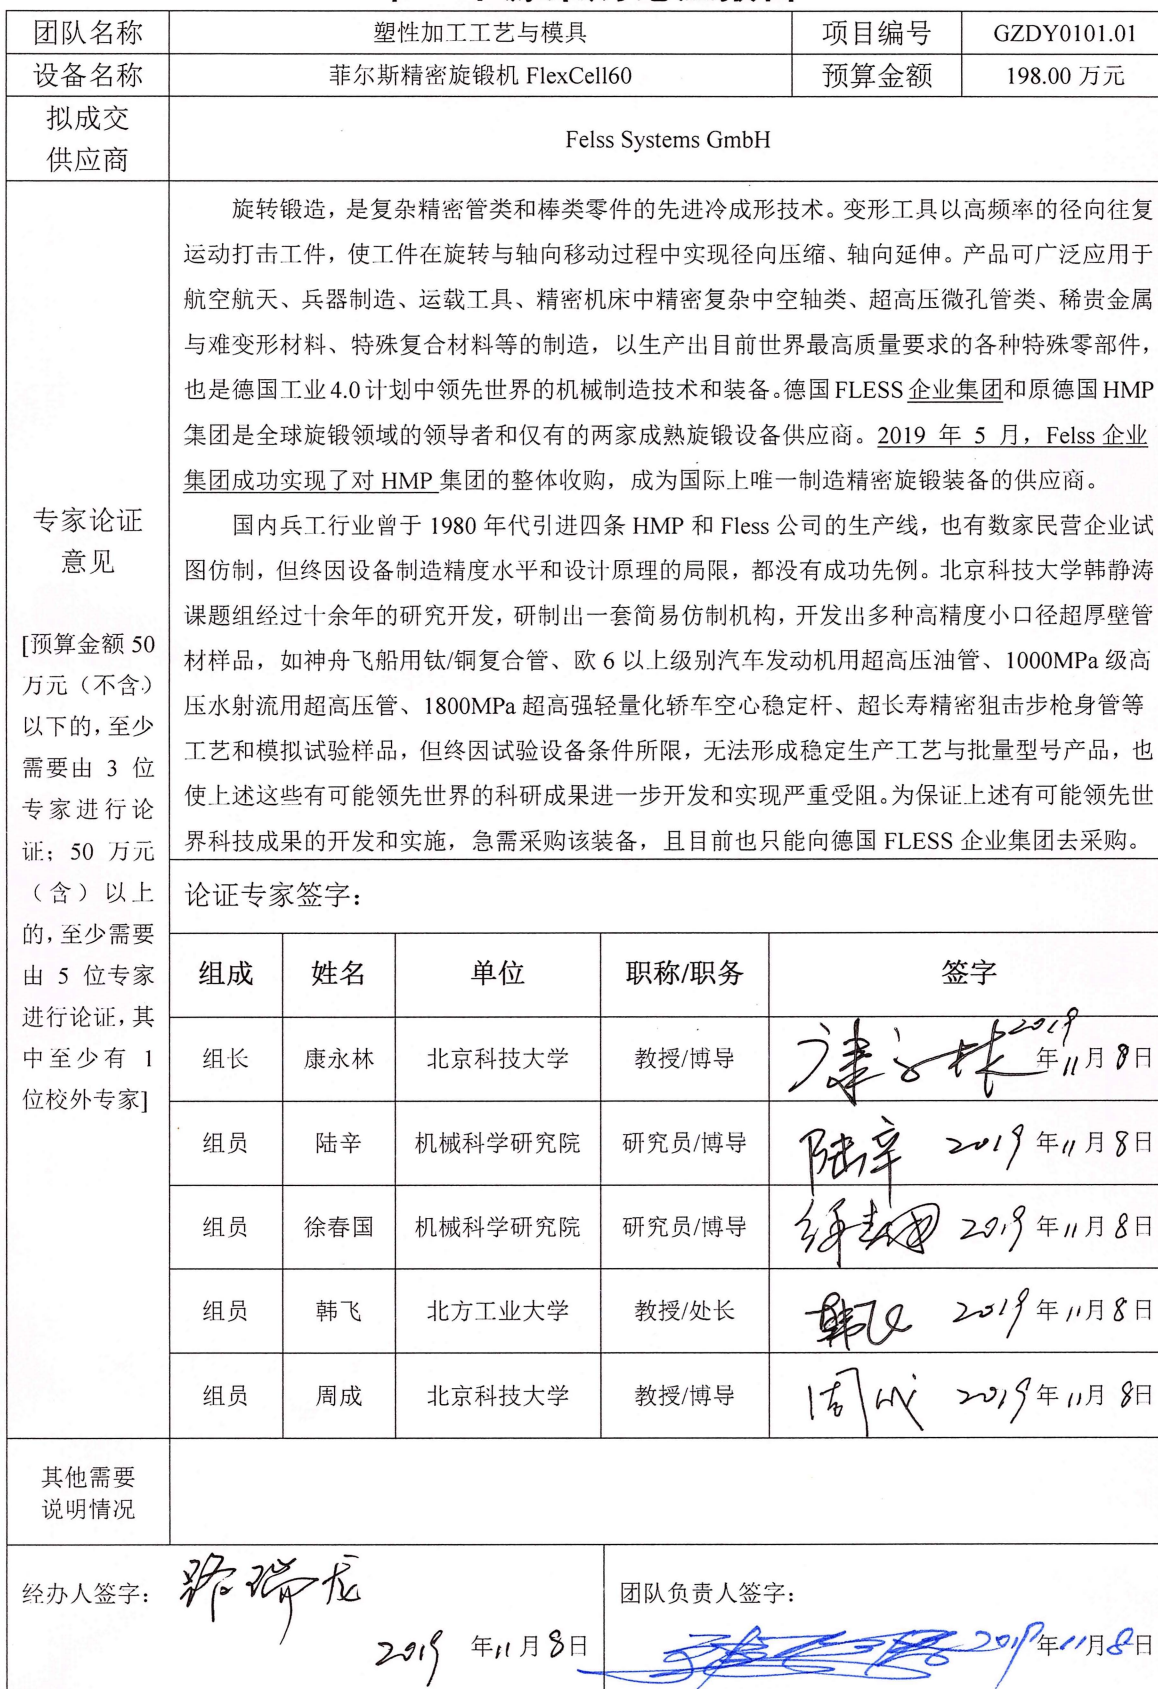 团队名称 塑性加工工艺与模具 项目编号 GZDY0101.01
设备名称 菲尔斯精密旋锻机 FlexCell60 预算金额 198.00 万元
拟成交
供应商
Felss Systems GmbH
专家论证
意见
[预算金额 50
万元（不含）
以下的，至少
需要由 3 位
专家进行论
证；50 万元
（含）以上
的，至少需要
由 5 位专家
进行论证，其
中至少有 1
位校外专家]
旋转锻造，是复杂精密管类和棒类零件的先进冷成形技术。变形工具以高频率的径向往复
运动打击工件，使工件在旋转与轴向移动过程中实现径向压缩、轴向延伸。产品可广泛应用于
航空航天、兵器制造、运载工具、精密机床中精密复杂中空轴类、超高压微孔管类、稀贵金属
与难变形材料、特殊复合材料等的制造，以生产出目前世界最高质量要求的各种特殊零部件，
也是德国工业 4.0 计划中领先世界的机械制造技术和装备。德国 FLESS 企业集团和原德国 HMP
集团是全球旋锻领域的领导者和仅有的两家成熟旋锻设备供应商。2019 年 5 月，Felss 企业
集团成功实现了对 HMP 集团的整体收购，成为国际上唯一制造精密旋锻装备的供应商。
国内兵工行业曾于 1980 年代引进四条 HMP 和 Fless 公司的生产线，也有数家民营企业试
图仿制，但终因设备制造精度水平和设计原理的局限，都没有成功先例。北京科技大学韩静涛
课题组经过十余年的研究开发，研制出一套简易仿制机构，开发出多种高精度小口径超厚壁管
材样品，如神舟飞船用钛/铜复合管、欧 6 以上级别汽车发动机用超高压油管、1000MPa 级高
压水射流用超高压管、1800MPa 超高强轻量化轿车空心稳定杆、超长寿精密狙击步枪身管等
工艺和模拟试验样品，但终因试验设备条件所限，无法形成稳定生产工艺与批量型号产品，也
使上述这些有可能领先世界的科研成果进一步开发和实现严重受阻。为保证上述有可能领先世
界科技成果的开发和实施，急需采购该装备，且目前也只能向德国 FLESS 企业集团去采购。
论证专家签字：
组成 姓名 单位 职称/职务 签字
组长 康永林 北京科技大学 教授/博导 康永林 2019 年 11 月 8 日
组员 陆辛 机械科学研究院 研究员/博导 陆辛 2019 年 11 月 8 日
组员 徐春国 机械科学研究院 研究员/博导 徐春国 2019 年 11 月 8 日
组员 韩飞 北方工业大学 教授/处长 韩飞 2019 年 11 月 8 日
组员 周成 北京科技大学 教授/博导 周成 2019 年 11 月 8 日
其他需要
说明情况
经办人签字： 2019 年 11 月 8 日
团队负责人签字： 2019 年 11 月 8 日